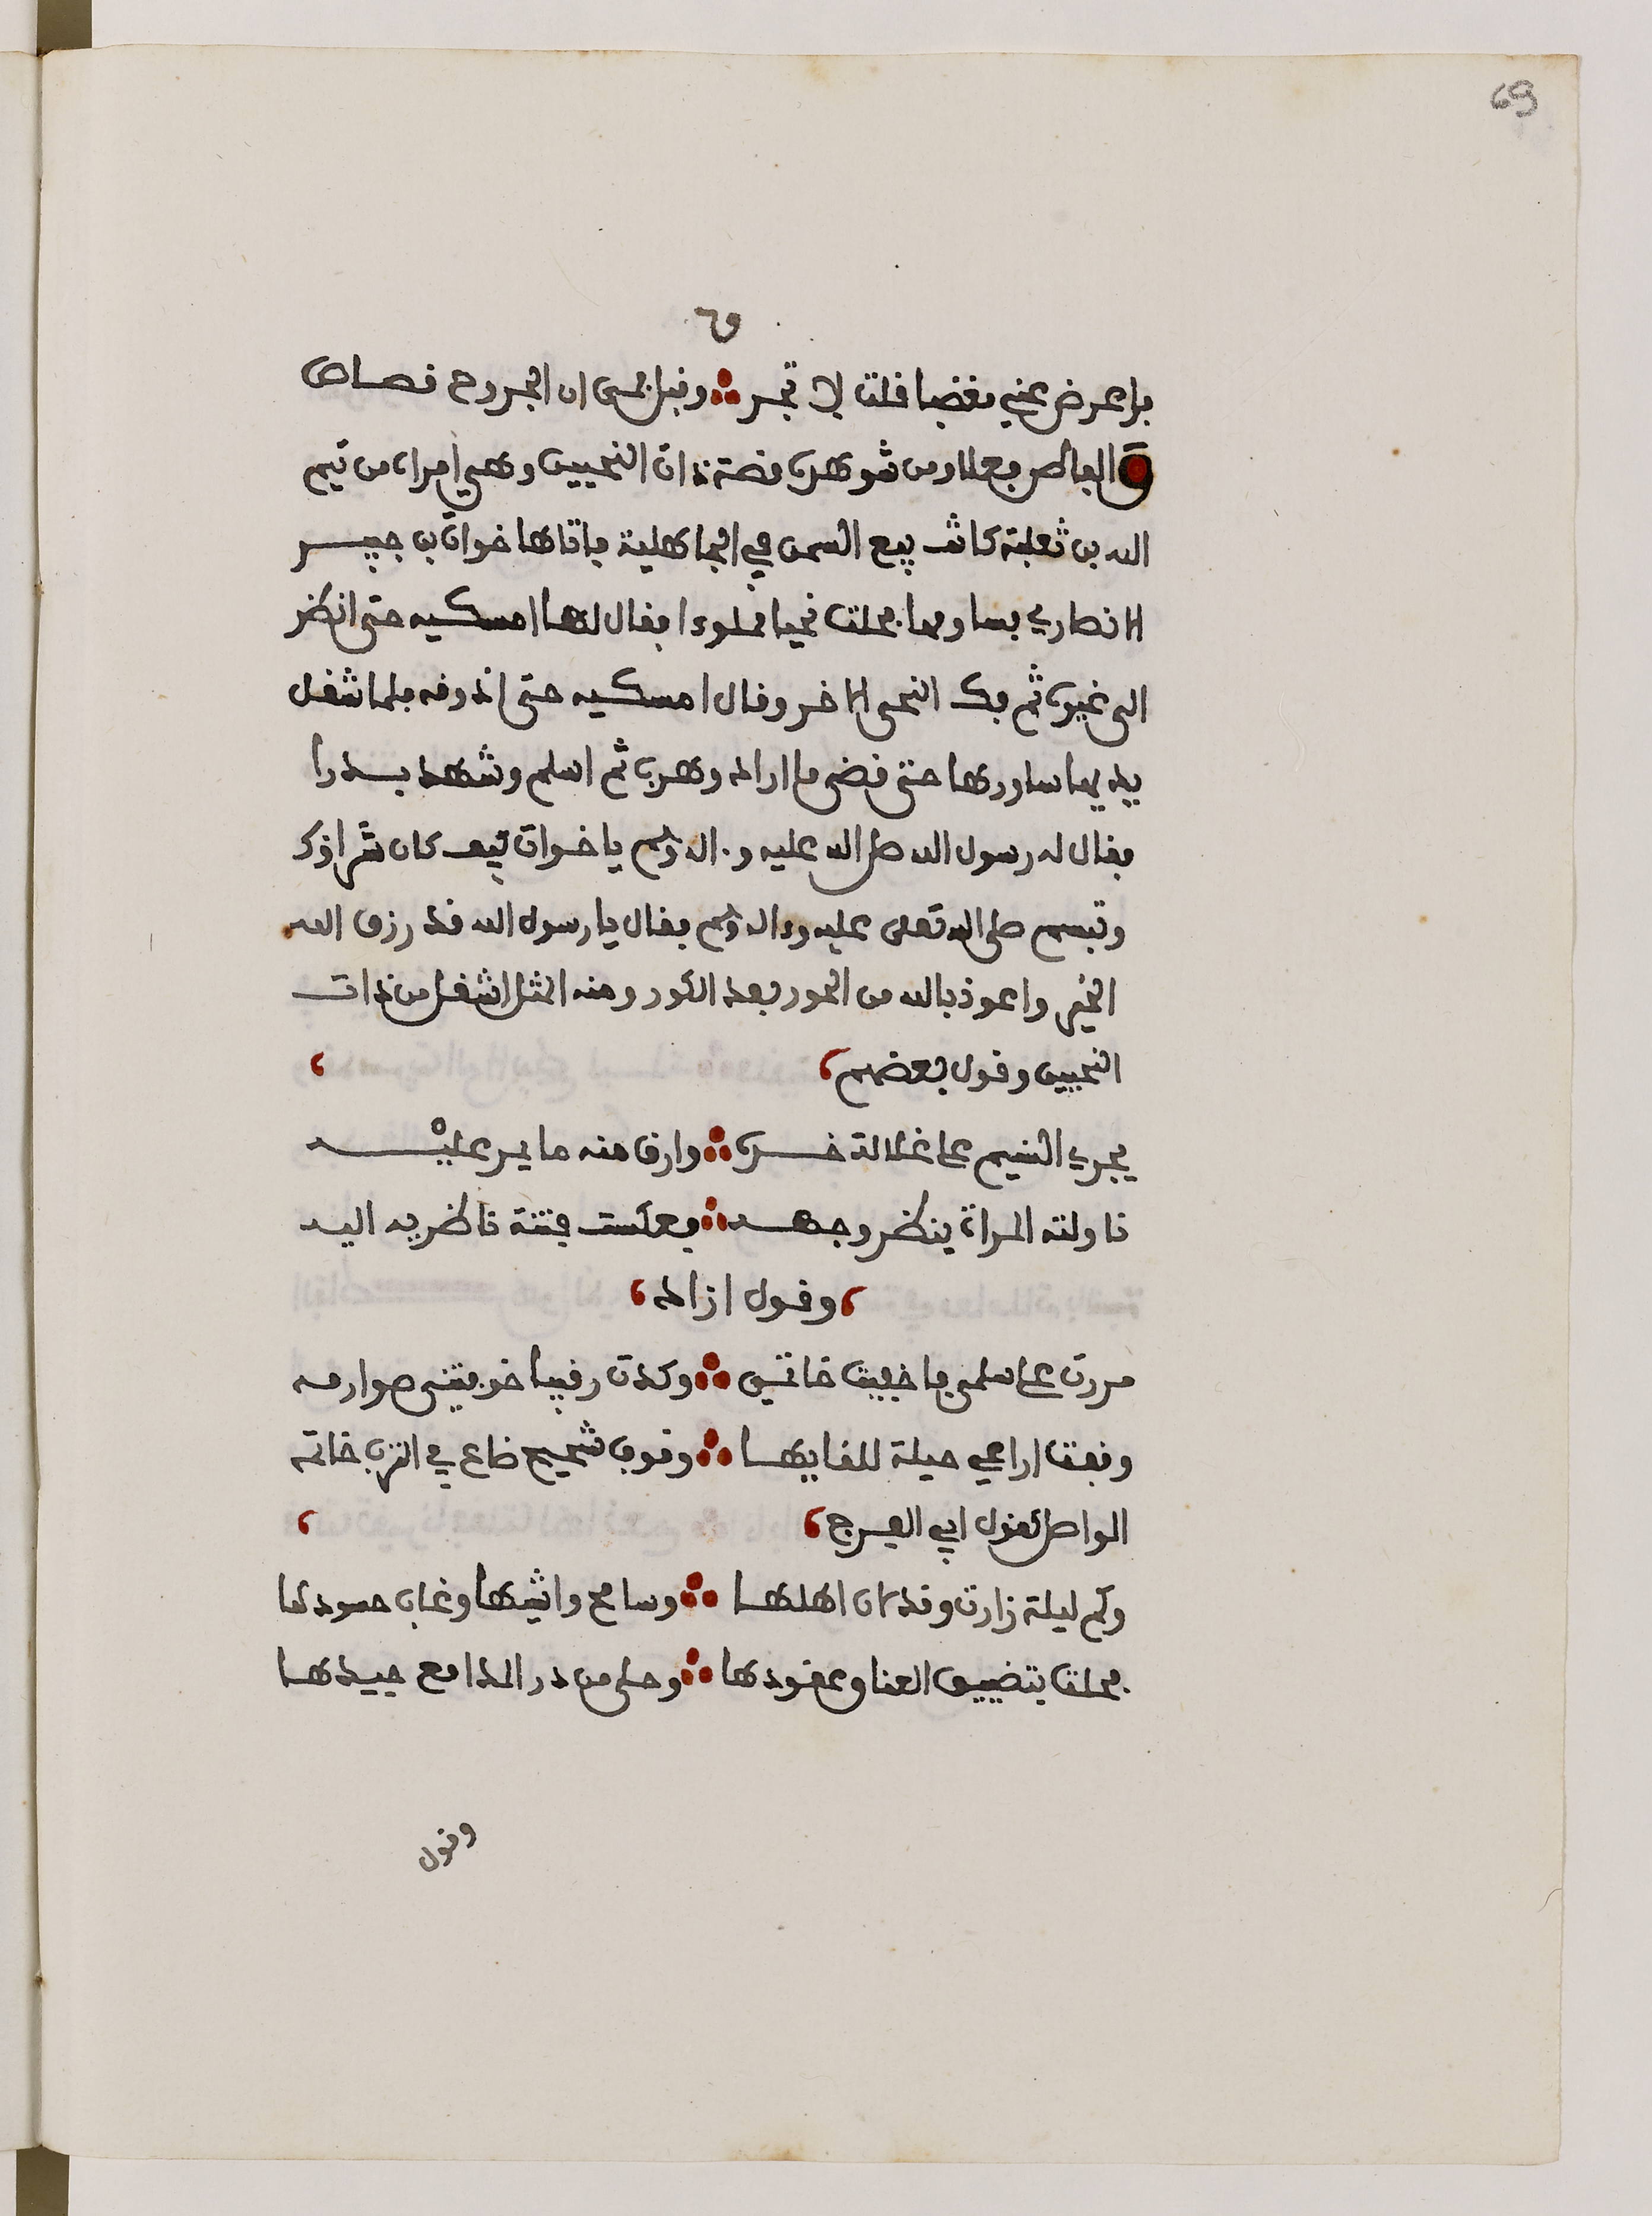 69
٦٩
فاعرض عني مغضبا قلت لا تجر وقبل فمى ان الجروح قصاص
الفاصل فعلا ومن شوهده قصة ذات النحيين وهي امراة من تيم
الله بن ثعلبة كانت تبيع السمن في الجاهلية فاتاها خوات بن جبير
الانصاري يساومها فحلت نحيا مملوءا فقال لها امسكيه حتى انظر
الى غيره ثم فك النحى الاخر وقال امسكيه حتى اذوقه فلما شغل
يديها ساورها حتى قضى ما اراد وهرب ثم اسلم وشهد بدرا
فقال له رسول الله صلى الله عليه وءاله وسلم يا خوات كيف كان شراؤك
وتبسم صلى الله تعلى عليه وءاله وسلم فقال يا رسول الله قد رزق الله
الخير واعوذ بالله من الحور بعد الكور ومنه المثل اشغل من ذات
النحيين وقول بعضهم
يجري النسيم على غلالة خده وارق منه ما يمر عليه
ناولته المراة ينظر وجهه فعكست فتنة ناظريه اليه
وقول ازاد
مررت على سلمى فاخفيت خاتمي وكدت رقيبا خوفتني صوارمه
وقفت اراعي حيلة للقايها وقوف شحيح ضاع في الترب خاتمه
الواصل كقول ابي الفرج
وكم ليلة زارت وقد نان اهلها وسامح واشيها وغاب حسودها
فحلت بتضييق العناق عقودها وحلى من در المدامع جيدها
وقول